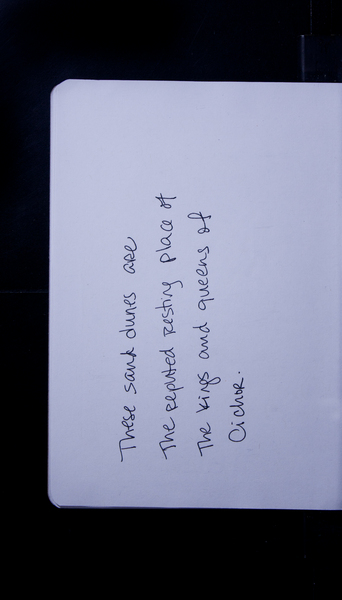 These sand dunes are
The reputed resting place of
The kings and queens of
Cichor.